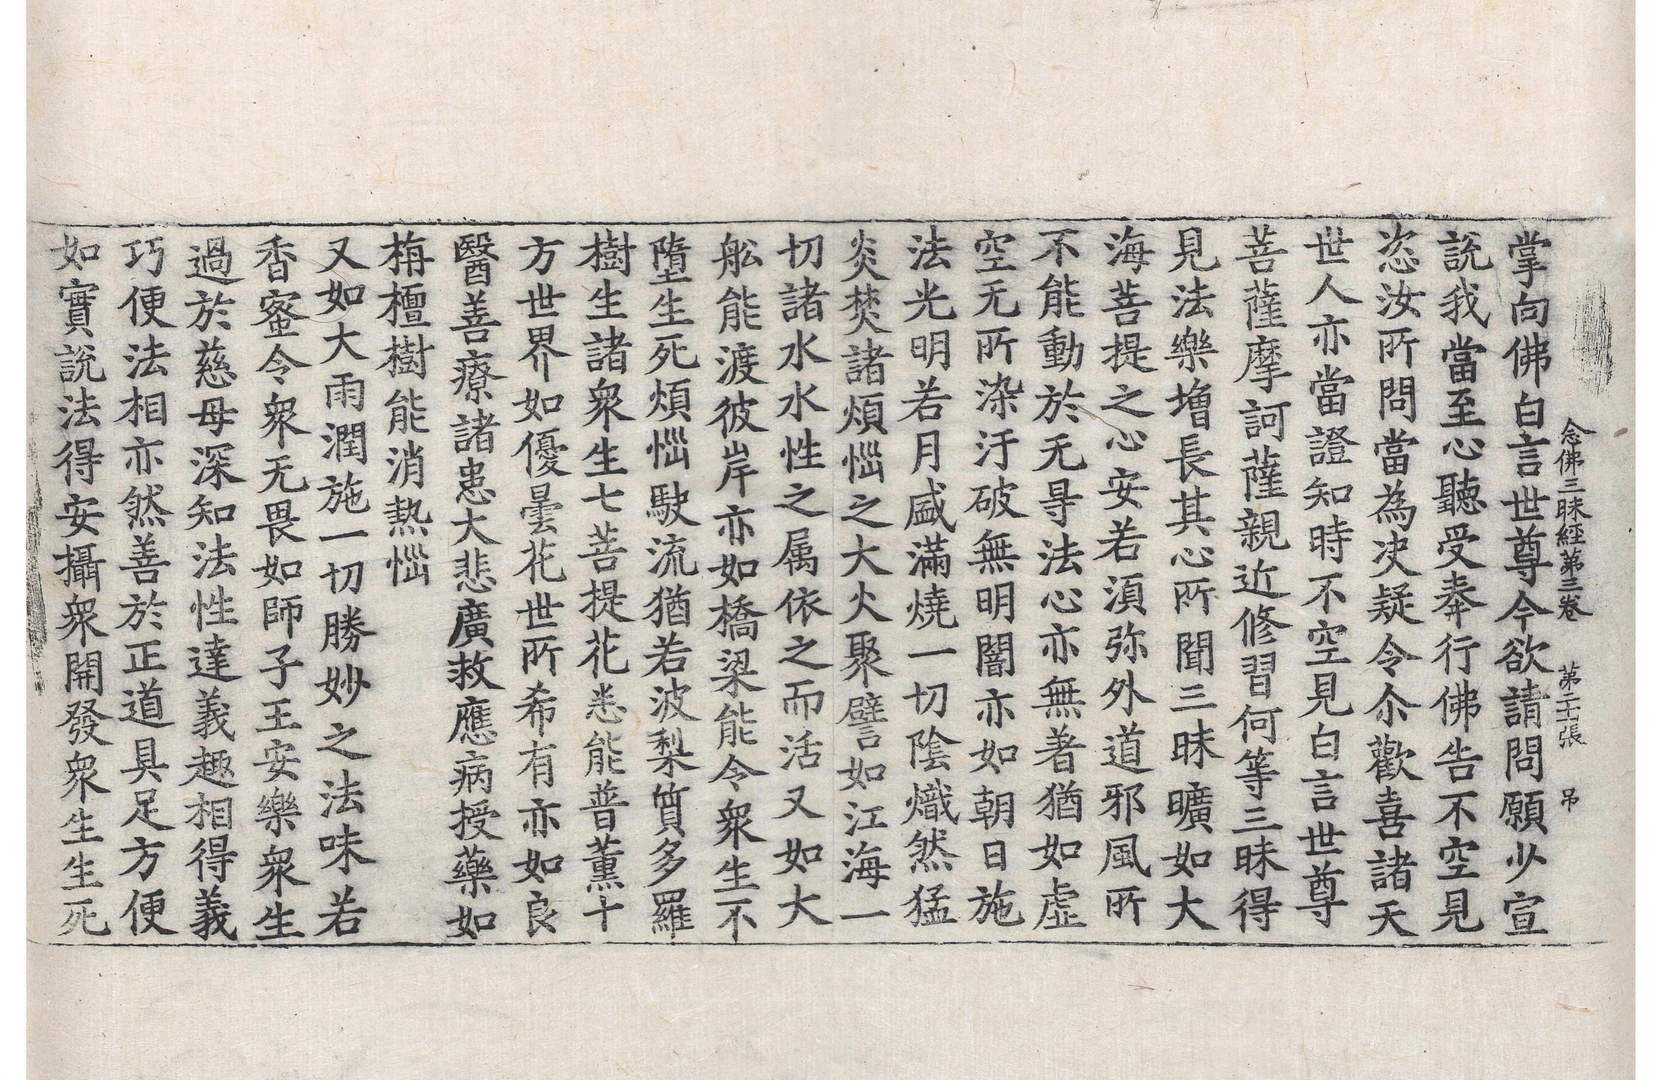 念佛三昧經第三卷 第二十張 吊
掌向佛白言世尊今欲請問願少宣
說我當至心聽受奉行佛告不空見
恣汝所問當為决疑令尒歡喜諸天
世人亦當證知時不空見白言世尊
菩薩摩訶薩親近修習何等三昧得
見法樂增長其心所聞三昧曠如大
海菩提之心安若湏弥外道邪風所
不能動於无㝵法心亦無著猶如虛
空无所染汙破無明闇亦如朝日施
法光明若月盛滿燒一切陰熾然猛
炎焚諸煩惱之大火聚譬如江海一
切諸水水性之属依之而活又如大
舩能渡彼岸亦如橋梁能令衆生不
墮生死煩惱駛流猶若波梨質多羅
樹生諸衆生七菩提花悉能普薰十
方世界如優曇花世所希有亦如良
醫善療諸患大悲廣救應病授藥如
栴檀樹能消熱惱
又如大雨潤施一切勝妙之法味若
香蜜令衆无畏如師子王安樂衆生
過於慈母深知法性達義趣相得義
巧便法相亦然善於正道具足方便
如實說法得安攝衆開發衆生生死